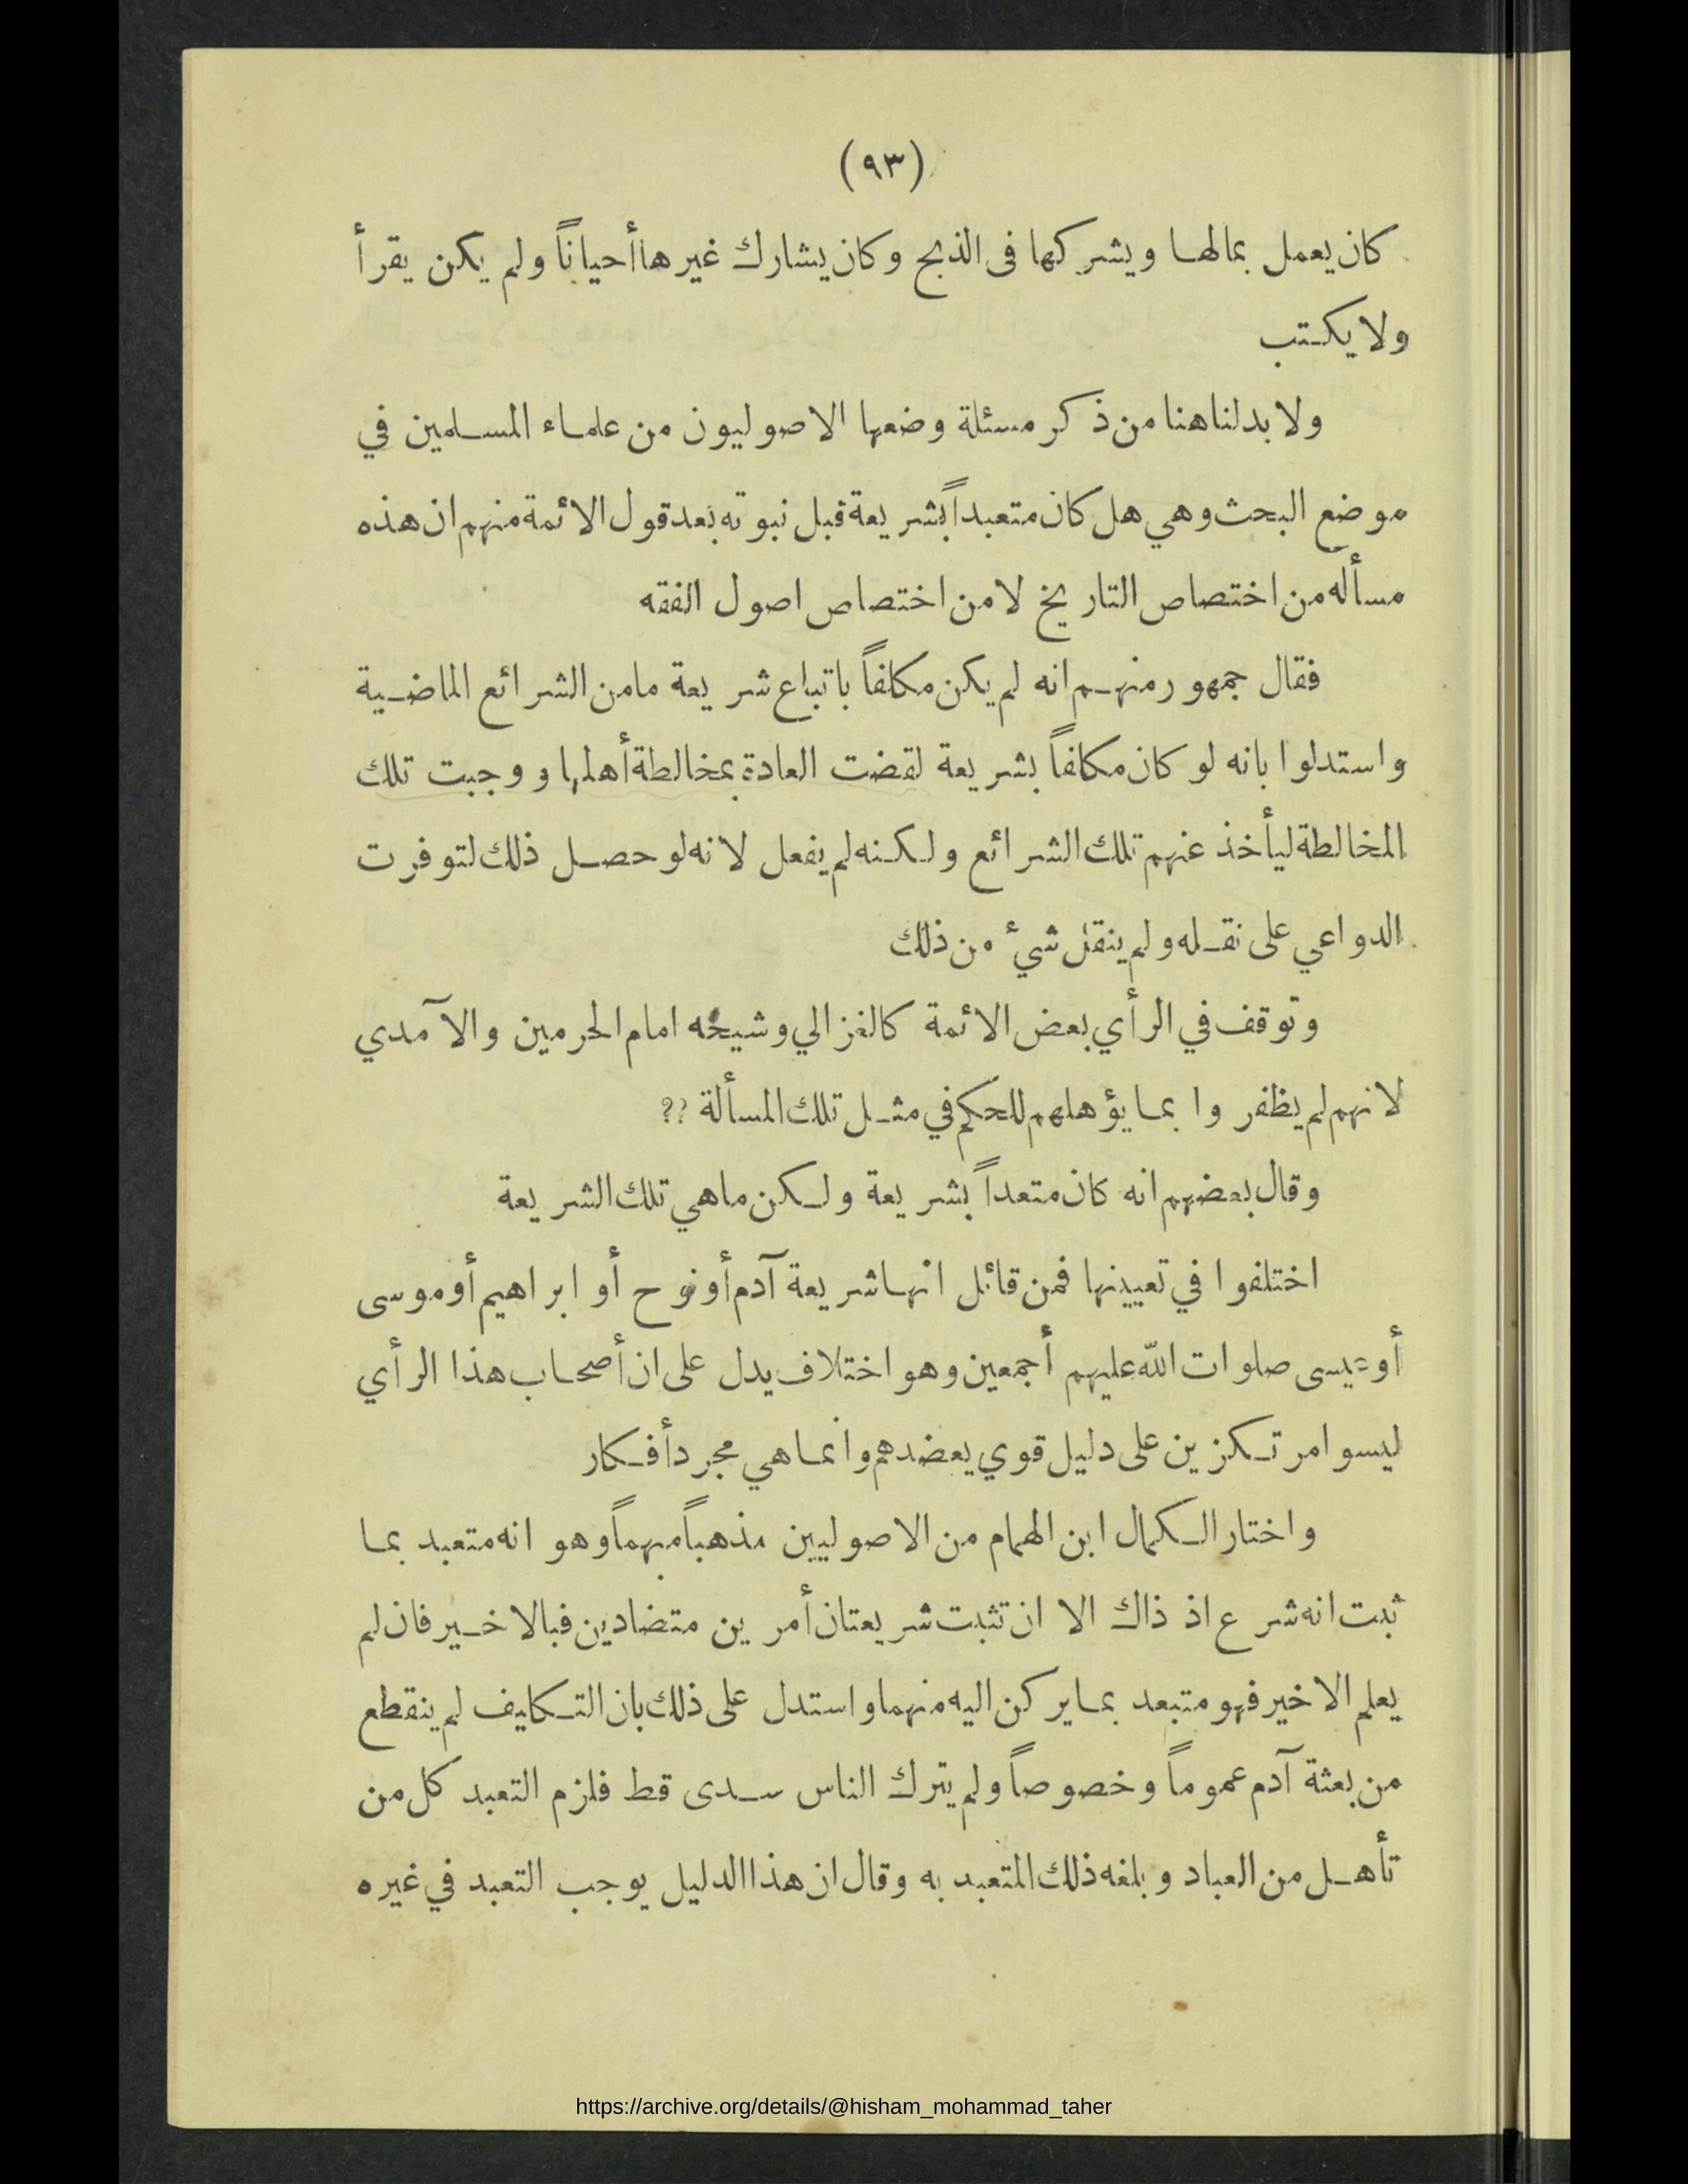 (٩٣)
كان يعمل بمالها ويشركها فى الذبح وكان يشارك غيرها أحياناً ولم يكن يقرأ
ولا يكتب
ولا بد لنا هنا من ذكر مسئلة وضعها الاصوليون من علماء المسلمين في
موضع البحث وهي هل كان متعبداً بشريعة قبل نبوته بعد قول الائمة منهم ان هذه
مسأله من اختصاص التاريخ لا من اختصاص اصول الفقه
فقال جمهور منهم انه لم يكن مكلفاً باتباع شريعة ما من الشرائع الماضية
واستدلوا بانه لو كان مكلفاً بشريعة لقضت العادة بمخالطة أهلها ووجبت تلك
المخالطة ليأخذ عنهم تلك الشرائع ولكنه لم يفعل لانه لو حصل ذلك لتوفرت
الدواعي على نقله ولم ينقل شيء من ذلك
وتوقف في الرأي بعض الائمة كالغزالي وشيخه امام الحرمين والآمدي
لانهم لم يظفروا بما يؤهلهم للحكم في مثل تلك المسألة ??
وقال بعضهم انه كان متعداً بشريعة ولكن ما هي تلك الشريعة
اختلفوا في تعيينها فمن قائل انها شريعة آدم أو نوح أو ابراهيم أو موسى
أو عيسى صلوات الله عليهم أجمعين وهو اختلاف يدل على ان أصحاب هذا الرأي
ليسوا مرتكزين على دليل قوي يعضدهم وانما هي مجرد أفكار
واختار الكمال ابن الهمام من الاصوليين مذهباً مهماً وهو انه متعبد بما
ثبت انه شرع اذ ذاك الا ان تثبت شريعتان أمرين متضادين فبالاخير فان لم
يعلم الاخير فهو متبعد بما يركن اليه منهما واستدل على ذلك بان التكليف لم ينقطع
من بعثة آدم عموماً وخصوصاً ولم يترك الناس سدى قط فلزم التعبد كل من
تأهل من العباد وبلغه ذلك المتعبد به وقال ان هذا الدليل يوجب التعبد في غيره
https://archive.org/details/@hisham_mohammad_taher